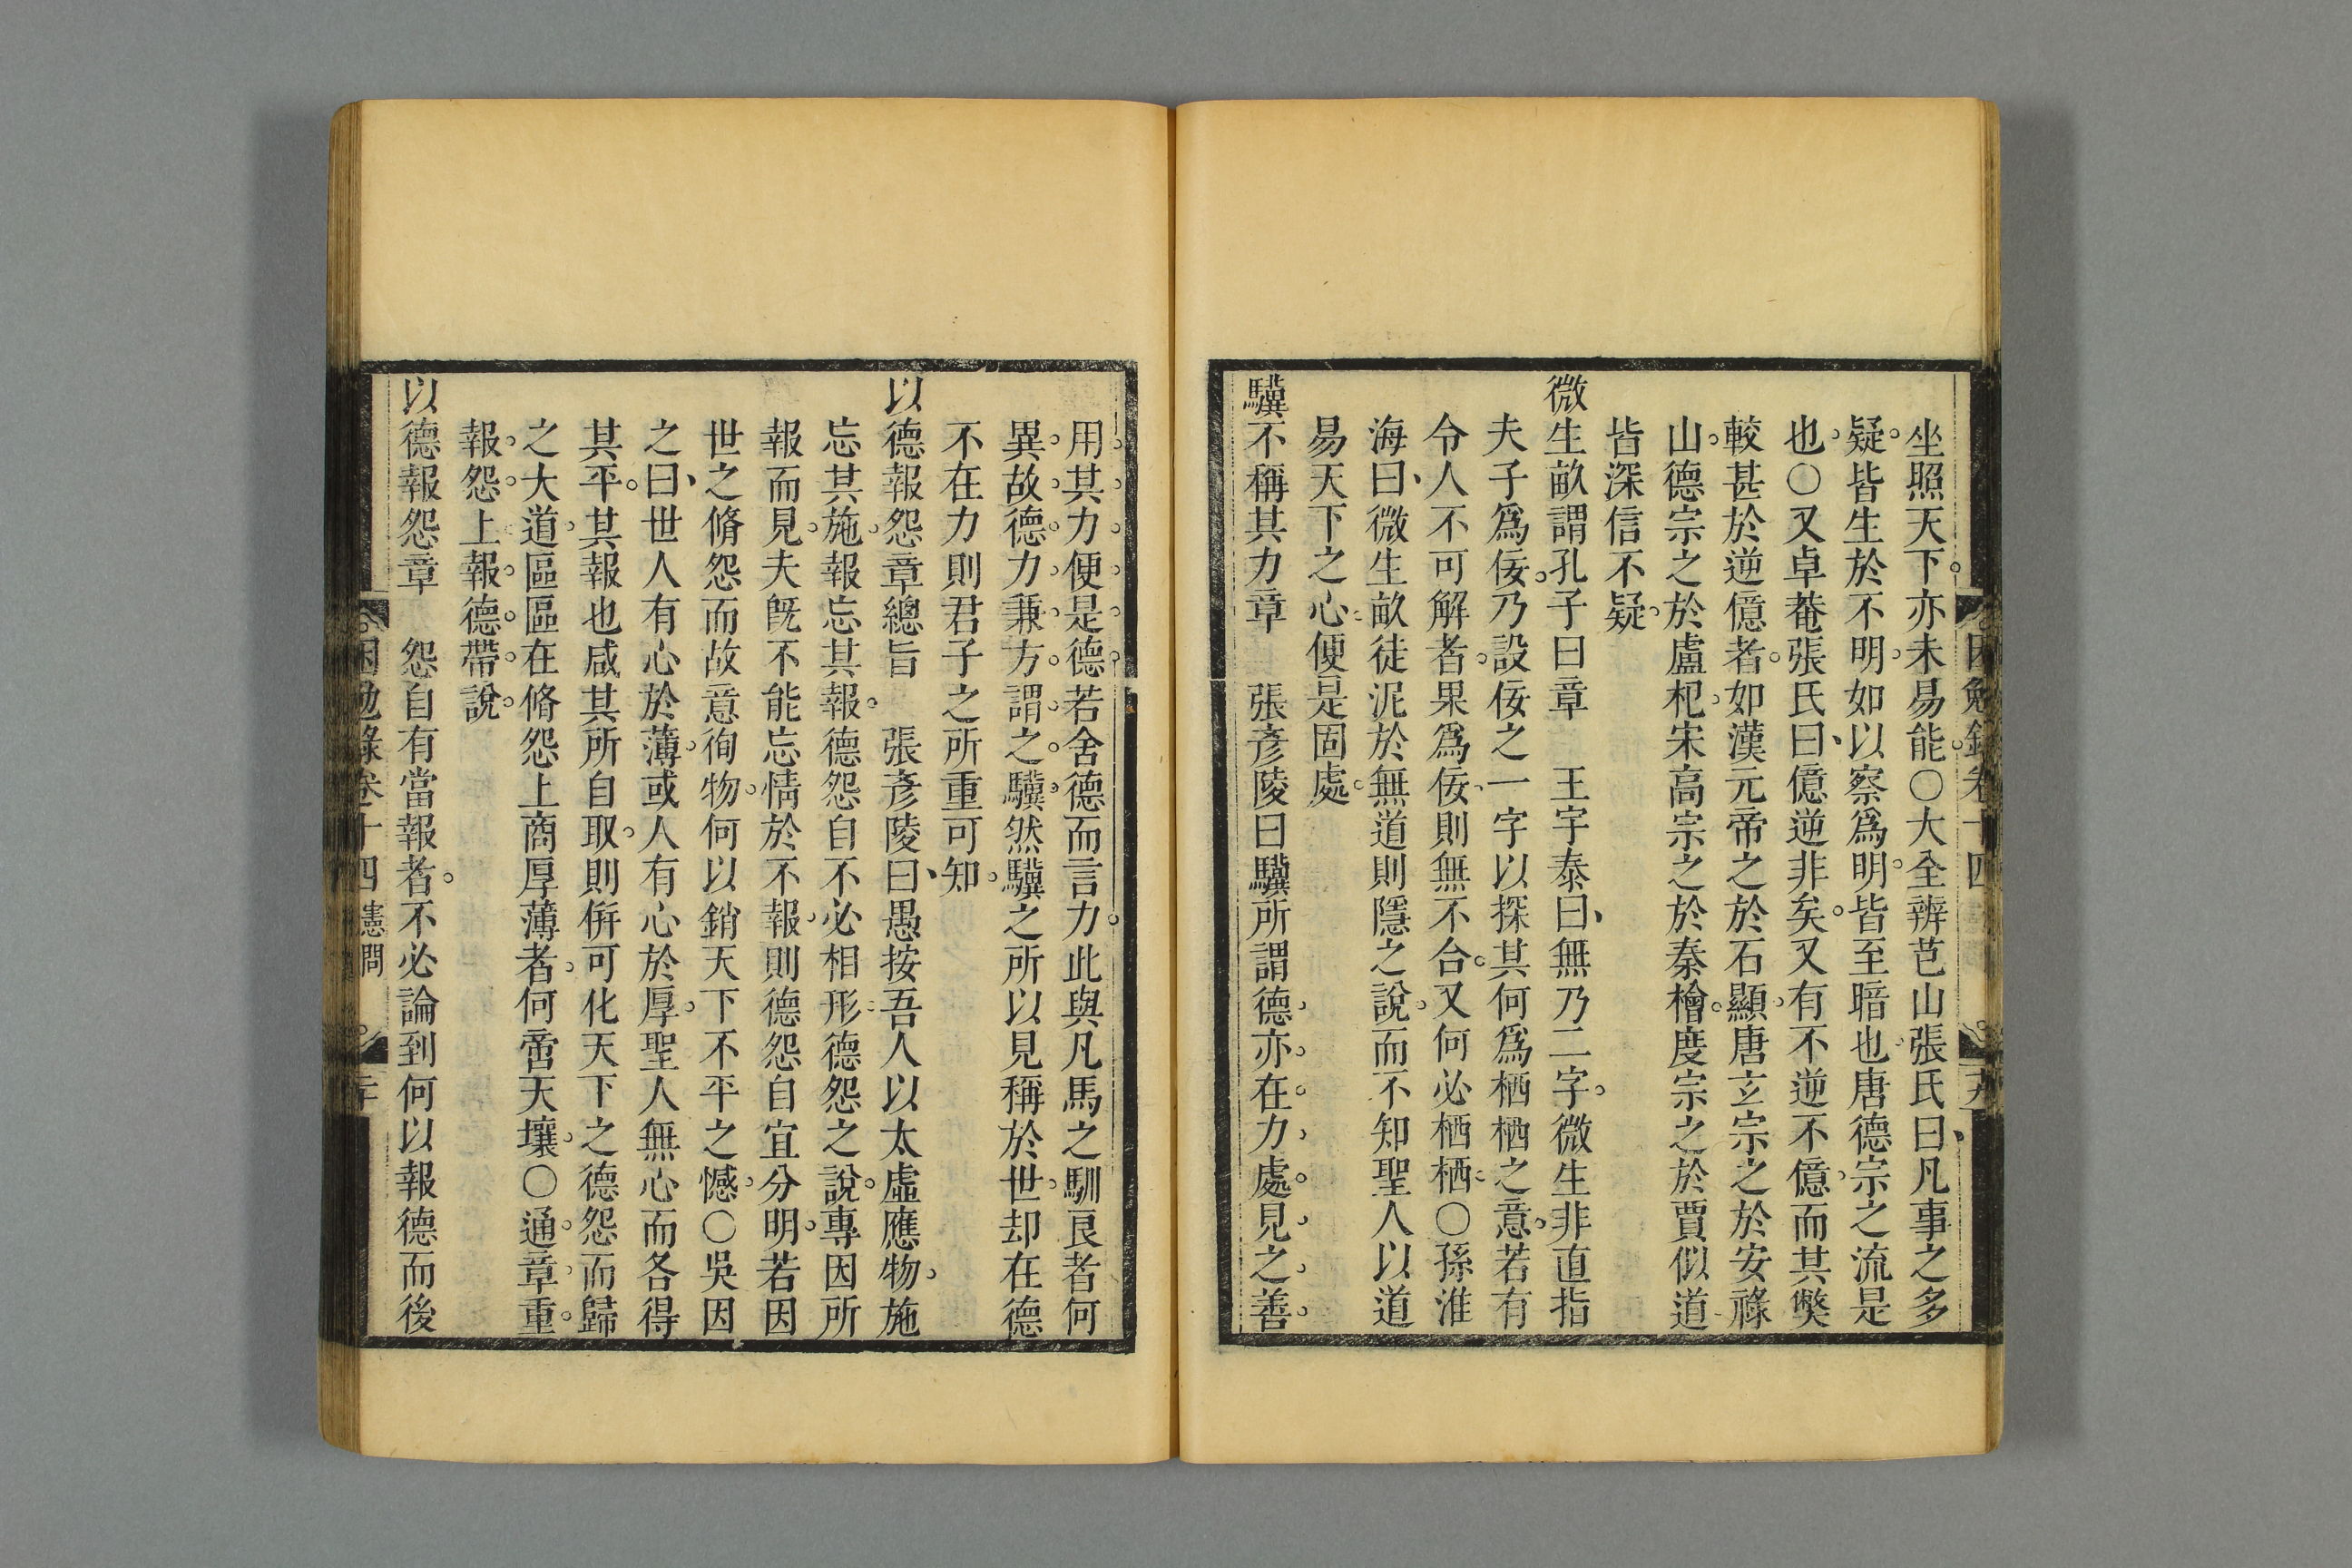 坐照天下亦未易能○大全辨芑山張氏曰凡事之多
疑皆生於不明如以察爲明皆至暗也唐德宗之流是
也○又卓菴張氏曰億逆非矣又有不逆不億而其獘
較甚於逆億者如漢元帝之於石顯唐玄宗之於安祿
山德宗之於盧杞宋高宗之於秦檜度宗之於賈似道
皆深信不疑
微生畝謂孔子曰章　王宇泰曰無乃二字微生非直指
夫子爲佞乃設佞之一字以探其何爲栖栖之意若有
令人不可解者果爲佞則無不合又何必栖栖○孫淮
海曰微生畝徒泥於無道則隱之說而不知聖人以道
易天下之心便是固處
驥不稱其力章　張彥陵曰驥所謂德亦在力處見之善
用其力便是德若舍德而言力此與凡馬之馴良者何
異故德力兼方謂之驥然驥之所以見稱於世却在德
不在力則君子之所重可知
以德報怨章總旨　張彥陵曰愚按吾人以太虛應物施
忘其施報忘其報德怨自不必相形德怨之說專因所
報而見夫旣不能忘情於不報則德怨自宜分明若因
世之脩怨而故意徇物何以銷天下不平之憾○吳因
之曰世人有心於薄或人有心於厚聖人無心而各得
其平其報也咸其所自取則倂可化天下之德怨而歸
之大道區區在脩怨上商厚薄者何啻天壤○通章重
報怨上報德帶說
以德報怨章　怨自有當報者不必論到何以報德而後
困勉錄卷十四　憲問　二十